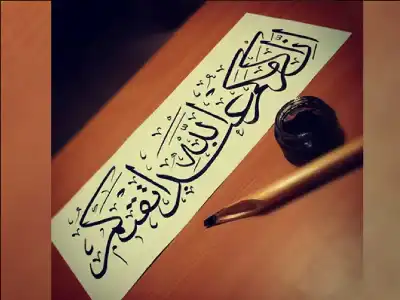 ان اكرمكم عند الله اتقىكم